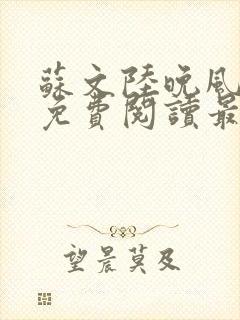 蘇文陸晚風
免費閱讀最
望晨莫及